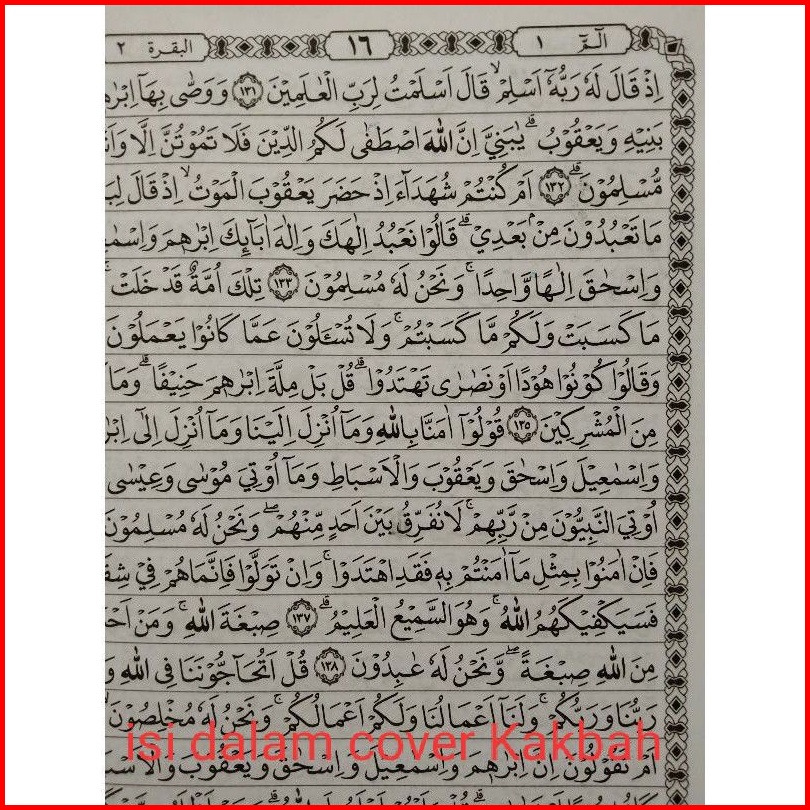 الٓمّٓ ١
١٦
البقرة ٢
اِذْ قَالَ لَهٗ رَبُّهٗٓ اَسْلِمْۙ قَالَ اَسْلَمْتُ لِرَبِّ الْعٰلَمِيْنَ ﴿١٣١﴾ وَوَصّٰى بِهَآ
بَنِيْهِ وَيَعْقُوْبُۗ يٰبَنِيَّ اِنَّ اللّٰهَ اصْطَفٰى لَكُمُ الدِّيْنَ فَلَا تَمُوْتُنَّ اِلَّا
مُّسْلِمُوْنَۗ ﴿١٣٢﴾ اَمْ كُنْتُمْ شُهَدَاۤءَ اِذْ حَضَرَ يَعْقُوْبَ الْمَوْتُۙ اِذْ قَالَ
مَا تَعْبُدُوْنَ مِنْۢ بَعْدِيْۗ قَالُوْا نَعْبُدُ اِلٰهَكَ وَاِلٰهَ اٰبَاۤىِٕكَ اِبْرٰهٖمَ
وَاِسْحٰقَ اِلٰهًا وَّاحِدًاۚ وَنَحْنُ لَهٗ مُسْلِمُوْنَ ﴿١٣٣﴾ تِلْكَ اُمَّةٌ قَدْ خَلَتْۚ
مَا كَسَبَتْ وَلَكُمْ مَّا كَسَبْتُمْۚ وَلَا تُسْـَٔلُوْنَ عَمَّا كَانُوْا يَعْمَلُوْنَ
وَقَالُوْا كُوْنُوْا هُوْدًا اَوْ نَصٰرٰى تَهْتَدُوْاۗ قُلْ بَلْ مِلَّةَ اِبْرٰهٖمَ حَنِيْفًاۗ وَمَا
مِنَ الْمُشْرِكِيْنَ ﴿١٣٥﴾ قُوْلُوْٓا اٰمَنَّا بِاللّٰهِ وَمَآ اُنْزِلَ اِلَيْنَا وَمَآ اُنْزِلَ اِلٰٓى
وَاِسْمٰعِيْلَ وَاِسْحٰقَ وَيَعْقُوْبَ وَالْاَسْبَاطِ وَمَآ اُوْتِيَ مُوْسٰى وَعِيْسٰى
اُوْتِيَ النَّبِيُّوْنَ مِنْ رَّبِّهِمْۚ لَا نُفَرِّقُ بَيْنَ اَحَدٍ مِّنْهُمْۖ وَنَحْنُ لَهٗ مُسْلِمُوْنَ
فَاِنْ اٰمَنُوْا بِمِثْلِ مَآ اٰمَنْتُمْ بِهٖ فَقَدِ اهْتَدَوْاۚ وَاِنْ تَوَلَّوْا فَاِنَّمَا هُمْ فِيْ
فَسَيَكْفِيْكَهُمُ اللّٰهُۚ وَهُوَ السَّمِيْعُ الْعَلِيْمُۗ ﴿١٣٧﴾ صِبْغَةَ اللّٰهِۚ وَمَنْ
مِنَ اللّٰهِ صِبْغَةًۖ وَّنَحْنُ لَهٗ عٰبِدُوْنَ ﴿١٣٨﴾ قُلْ اَتُحَاۤجُّوْنَنَا فِى اللّٰهِ
رَبُّنَا وَرَبُّكُمْۚ وَلَنَآ اَعْمَالُنَا وَلَكُمْ اَعْمَالُكُمْۚ وَنَحْنُ لَهٗ مُخْلِصُوْنَۙ
isi dalam cover Kakbah
اَمْ تَقُوْلُوْنَ اِنَّ اِبْرٰهٖمَ وَاِسْمٰعِيْلَ وَاِسْحٰقَ وَيَعْقُوْبَ